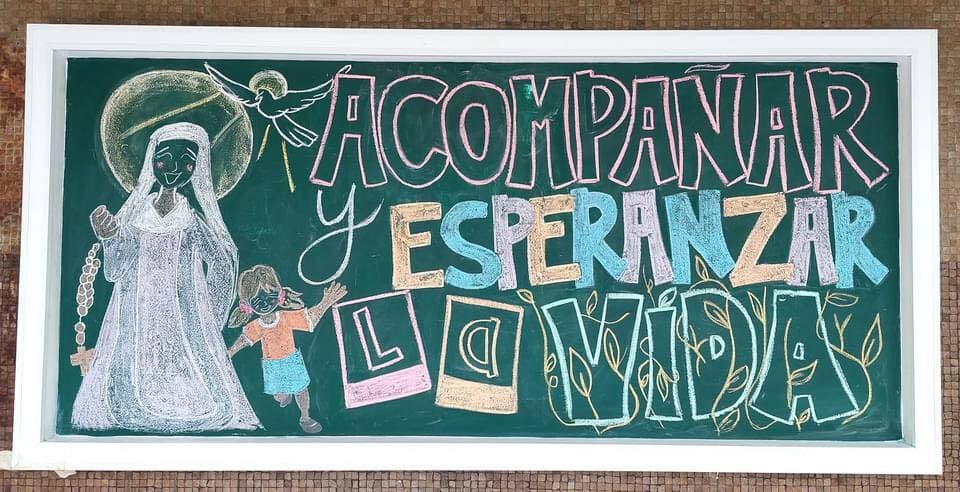 ACOMPAÑAR
y ESPERANZAR
La VIDA